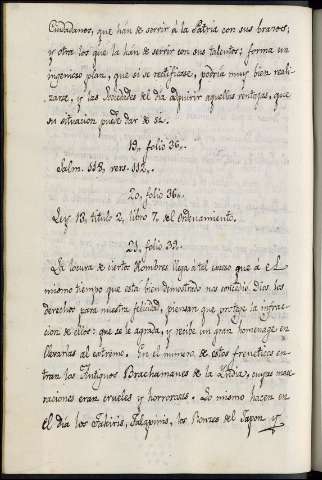 Ciudadanos, que han de servir á la Patria con sus brazos,
y otra los que la han de servir con sus talentos; forma un
ingenioso plan, que si se rectificase, podria muy bien reali-
zarse, y las Sociedades del dia adquirir aquellas ventajas, que
su situacion puede dar de sí.
19, folio 36,.
Salm. 118, vers. 112,.
20, folio 36,.
Ley 13, titulo 2, libro 7, del Ordenamiento.
21, folio 39.
La locura de ciertos Hombres llega á tal exceso que á el
mismo tiempo que esta bien demostrado nos concedio Dios los
derechos para nuestra felicidad, piensan que protege la infrac-
cion de ellos: que se le agrada, y recibe un gran homenage en
llevarlas al extremo. En el numero de estos freneticos en-
tran los Antiguos Brachamanes de la India, cuyas mace-
raciones eran crueles y horrorosas. Lo mismo hacen en
el dia los Fakiris, Talapinis, los Bonzes del Japon y